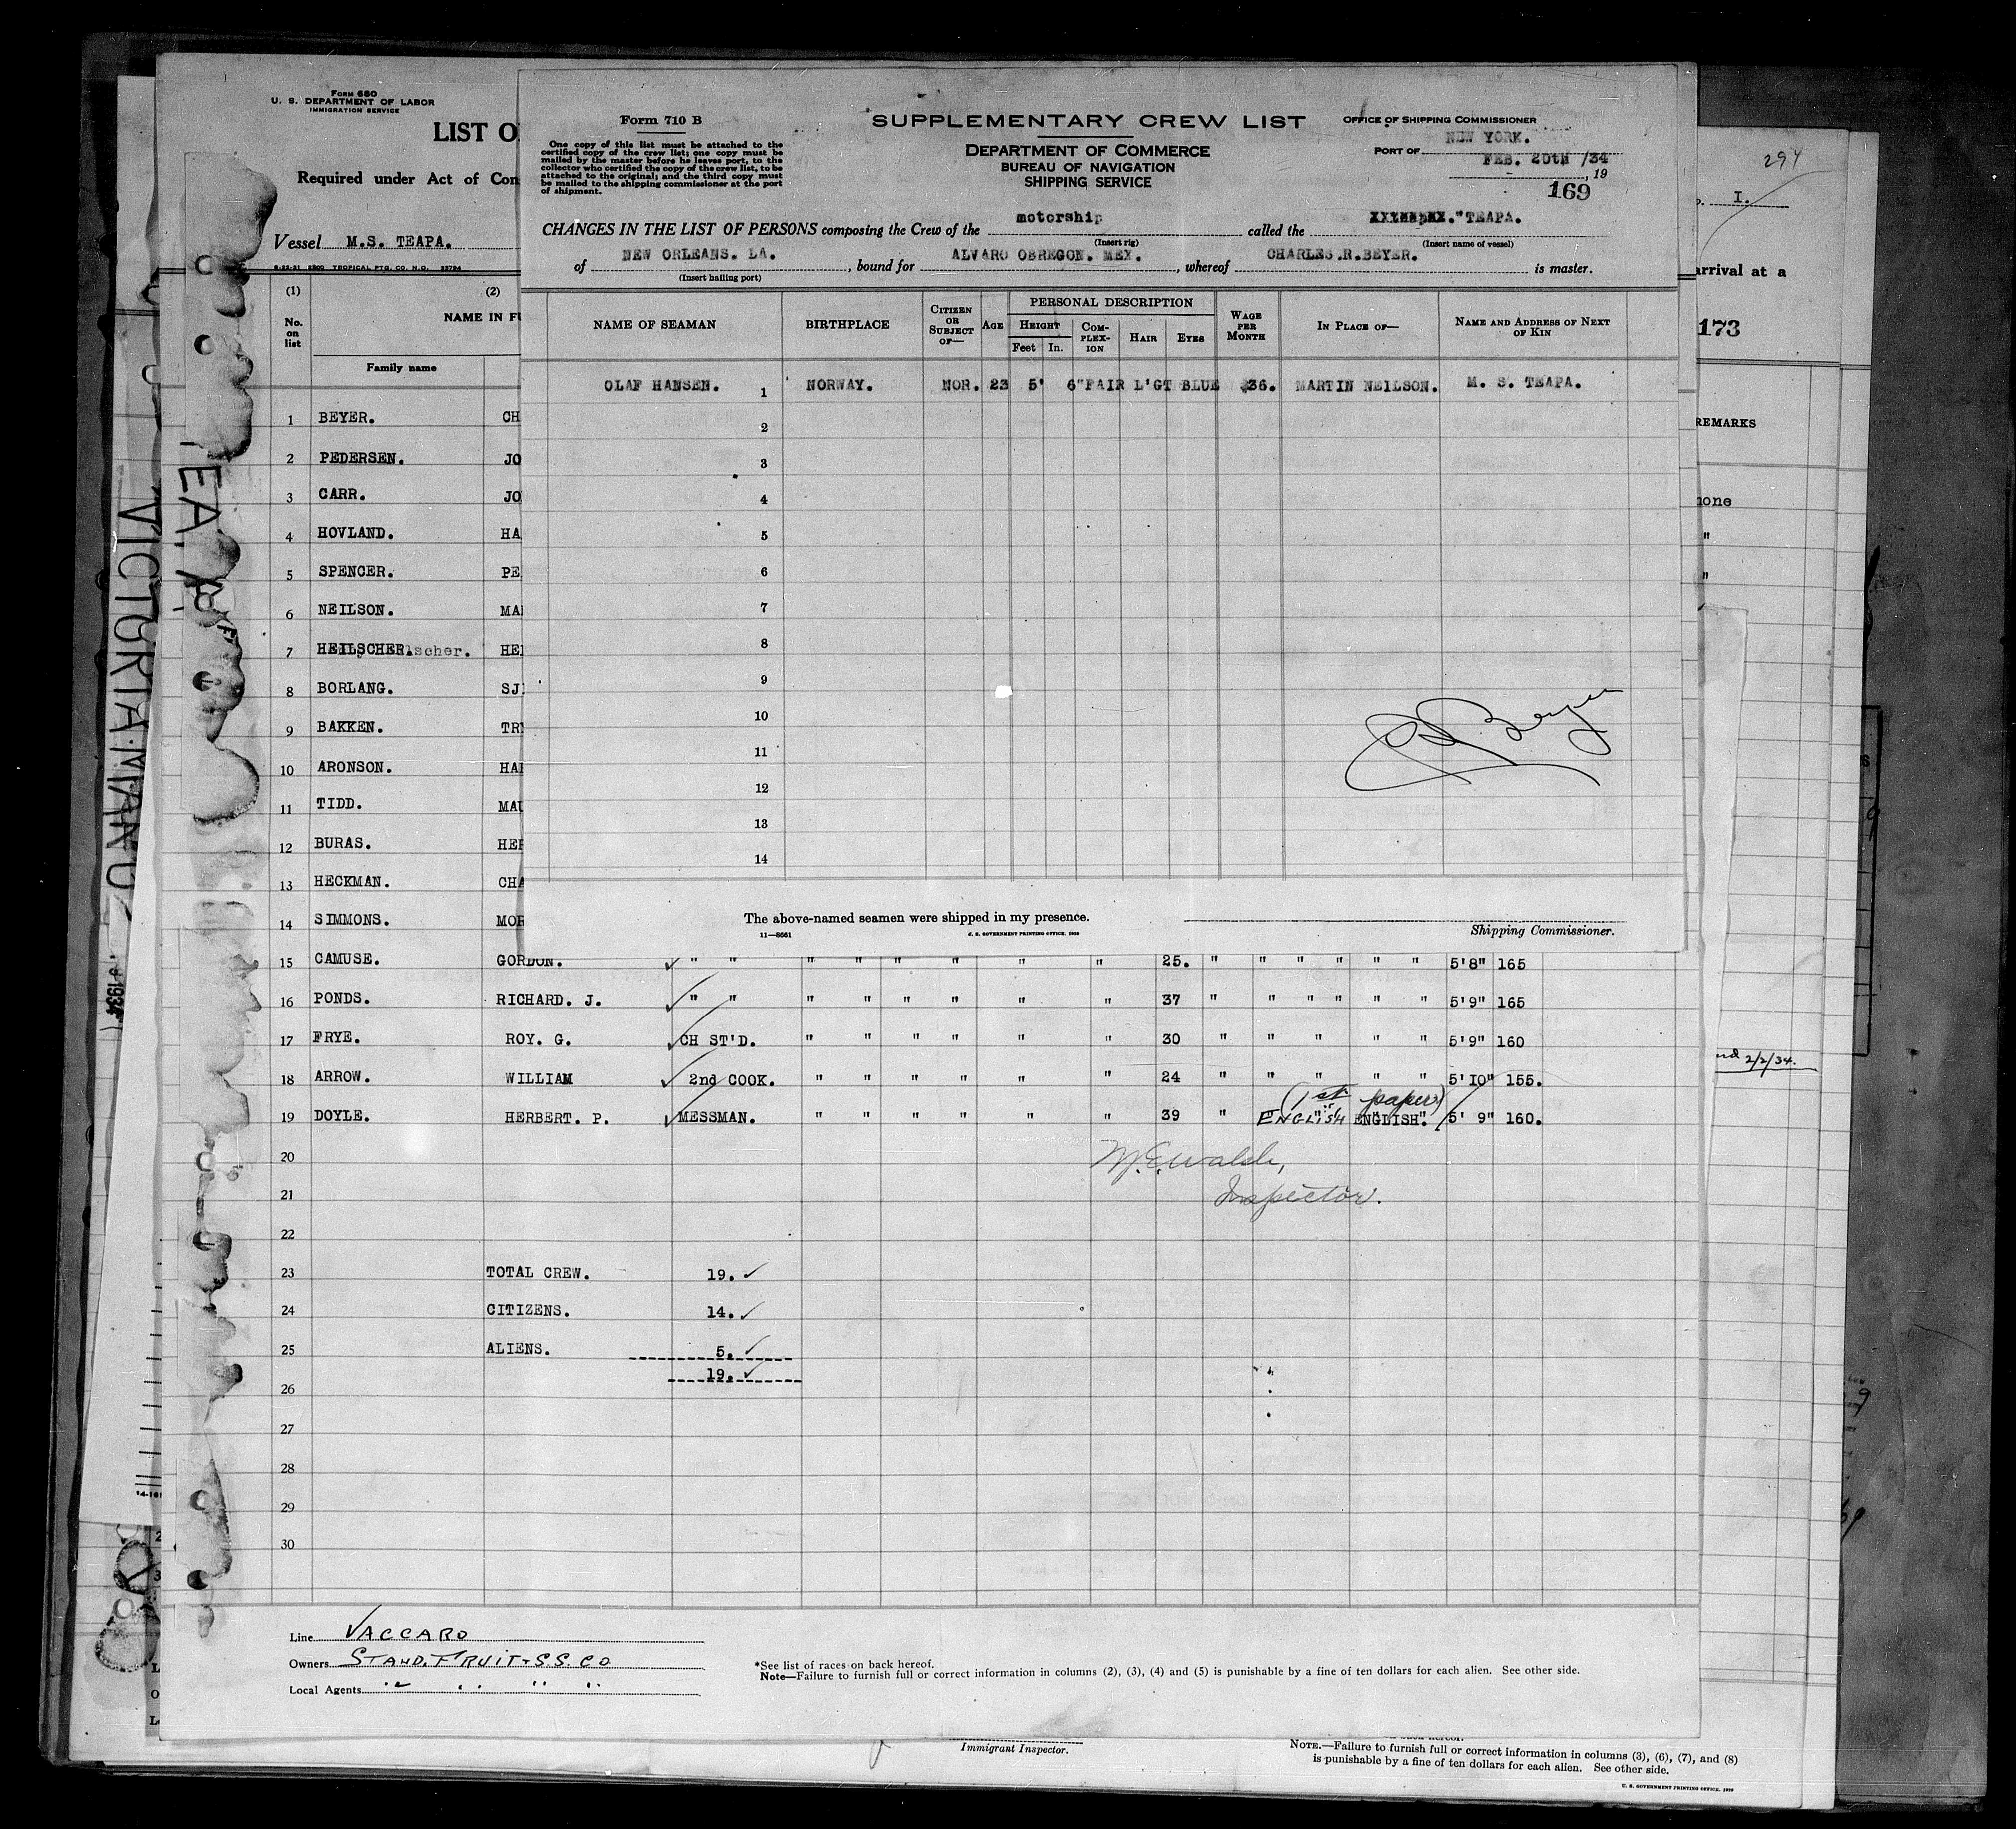 Form 680
U. S. DEPARTMENT OF LABOR
IMMIGRATION SERVICE
LIST O
Required under Act of Con
Vessel M.S. TEAPA.
(1) (2)
No. on list
NAME IN FU
Family name
1 BEYER. CH
2 PEDERSEN. JO
3 CARR. JO
4 HOVLAND. HA
5 SPENCER. PE
6 NEILSON. MA
7 HEILSCHER. HE
8 BORLANG. SJ
9 BAKKEN. TR
10 ARONSON. HA
11 TIDD. MAU
12 BURAS. HE
13 HECKMAN. CHA
14 SIMMONS. MOR
Form 710 B
One copy of this list must be attached to the
certified copy of the crew list; one copy must be
mailed by the master before he leaves port, to the
collector who certified the copy of the crew list, to be
attached to the original; and the third copy must
be mailed to the shipping commissioner at the port
of shipment.
SUPPLEMENTARY CREW LIST
DEPARTMENT OF COMMERCE
BUREAU OF NAVIGATION
SHIPPING SERVICE
OFFICE OF SHIPPING COMMISSIONER
NEW YORK.
PORT OF
FEB. 20TH /34
, 19
169
CHANGES IN THE LIST OF PERSONS composing the Crew of the motorship called the "TEAPA.
(Insert rig) (Insert name of vessel)
of NEW ORLEANS. LA. , bound for ALVARO OBREGON. MEX. , whereof CHARLES.R.BEYER. is master.
(Insert hailing port)
NAME OF SEAMAN BIRTHPLACE CITIZEN OR SUBJECT OF— AGE PERSONAL DESCRIPTION WAGE PER MONTH IN PLACE OF— NAME AND ADDRESS OF NEXT OF KIN
HEIGHT COMPLEXION HAIR EYES
Feet In.
OLAF HANSEN. 1 NORWAY. NOR. 23 5' 6" FAIR L'GT BLUE $36. MARTIN NEILSON. M. S. TEAPA.
2
3
4
5
6
7
8
9
10
11
12
13
14
Beyer
The above-named seamen were shipped in my presence.
11—8661
U. S. GOVERNMENT PRINTING OFFICE. 1930
Shipping Commissioner.
15 CAMUSE. GORDON. " " " " " " " " 25. " " " " " " 5'8" 165
16 PONDS. RICHARD. J. " " " " " " " " 37 " " " " " " 5'9" 165
17 FRYE. ROY. G. CH ST'D. " " " " " " 30 " " " " " 5'9" 160
18 ARROW. WILLIAM 2nd COOK. " " " " " " 24 " " " " " 5'10" 155.
(1st paper)
19 DOYLE. HERBERT. P. MESSMAN. " " " " " " 39 " ENGLISH ENGLISH. 5' 9" 160.
20
21
Inspector.
22
23 TOTAL CREW. 19.
24 CITIZENS. 14.
25 ALIENS. 5.
19.
26
27
28
29
30
Line VACCARO
Owners STAND. FRUIT-S.S. CO
Local Agents " " " "
*See list of races on back hereof.
Note—Failure to furnish full or correct information in columns (2), (3), (4) and (5) is punishable by a fine of ten dollars for each alien. See other side.
Immigrant Inspector.
NOTE.—Failure to furnish full or correct information in columns (3), (6), (7), and (8)
is punishable by a fine of ten dollars for each alien. See other side.
U. S. GOVERNMENT PRINTING OFFICE. 1930
294
I.
arrival at a
173
REMARKS
none
"
"
2/2/34.
TEAPA
VICTORIA
1934